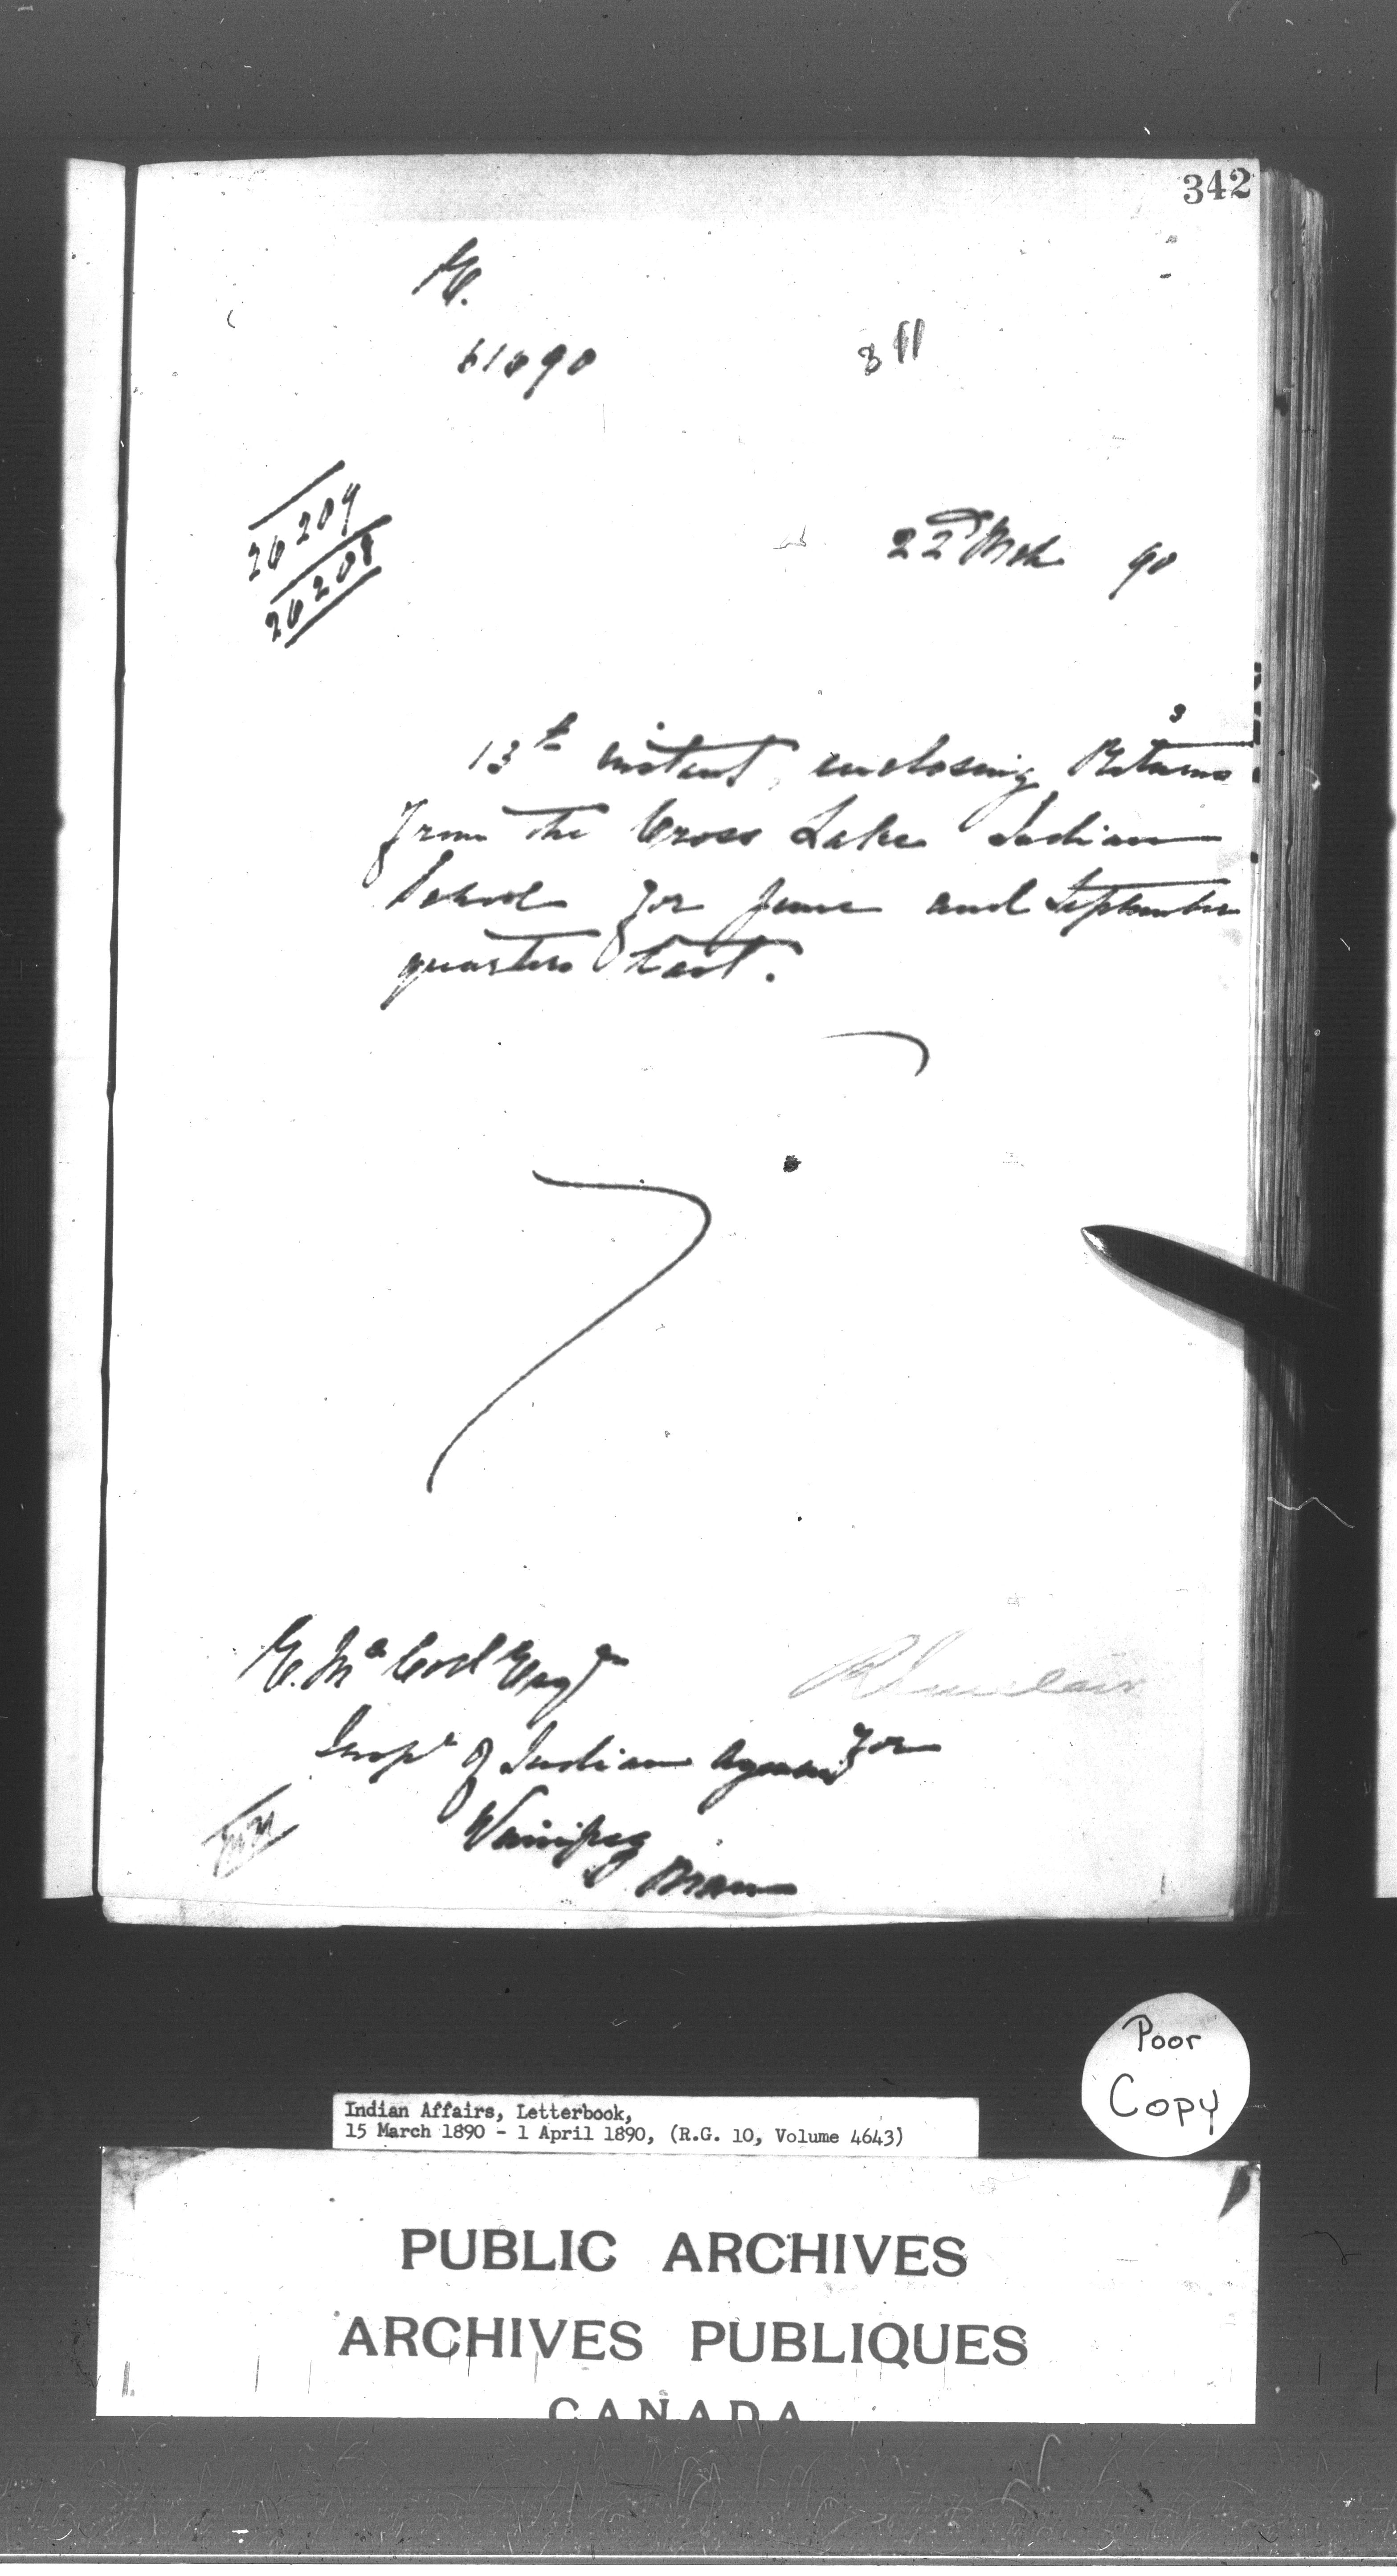 342
E.
61090
311
26209
26208
22d Mch 90
3
13th instant, enclosing Returns
from the Cross Lake Indian
School for June and September
quarters last.
E. McColl Esqre
R Sinclair
Inspr of Indian Agencies
for
Winnipeg
Man
Poor
Copy
Indian Affairs, Letterbook,
15 March 1890 - 1 April 1890, (R.G. 10, Volume 4643)
PUBLIC ARCHIVES
ARCHIVES PUBLIQUES
CANADA